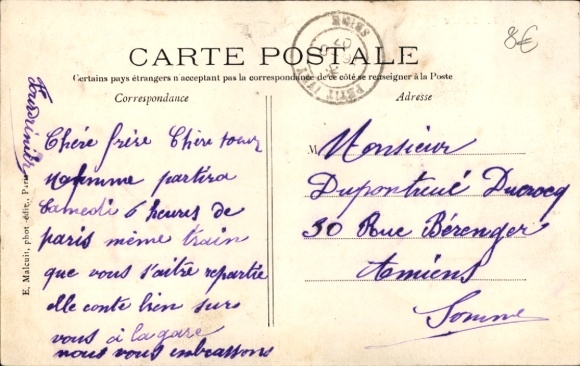 8€
SEINE
PETIT IVRY
CARTE POSTALE
Certains pays étrangers n'acceptant pas la correspondance de ce côté se renseigner à la Poste
Correspondance
Adresse
E. Malcuit, phot.-édit., Paris
Chére frère Chère soeur
partira
Samedi 6 heures de
paris même train
que vous s'aitre repartie
elle conte bien sur
vous à la gare
nous vous embrassons
M Monsieur
Duponteué Ducrocq
30 Rue Bérenger
Amiens
Somme